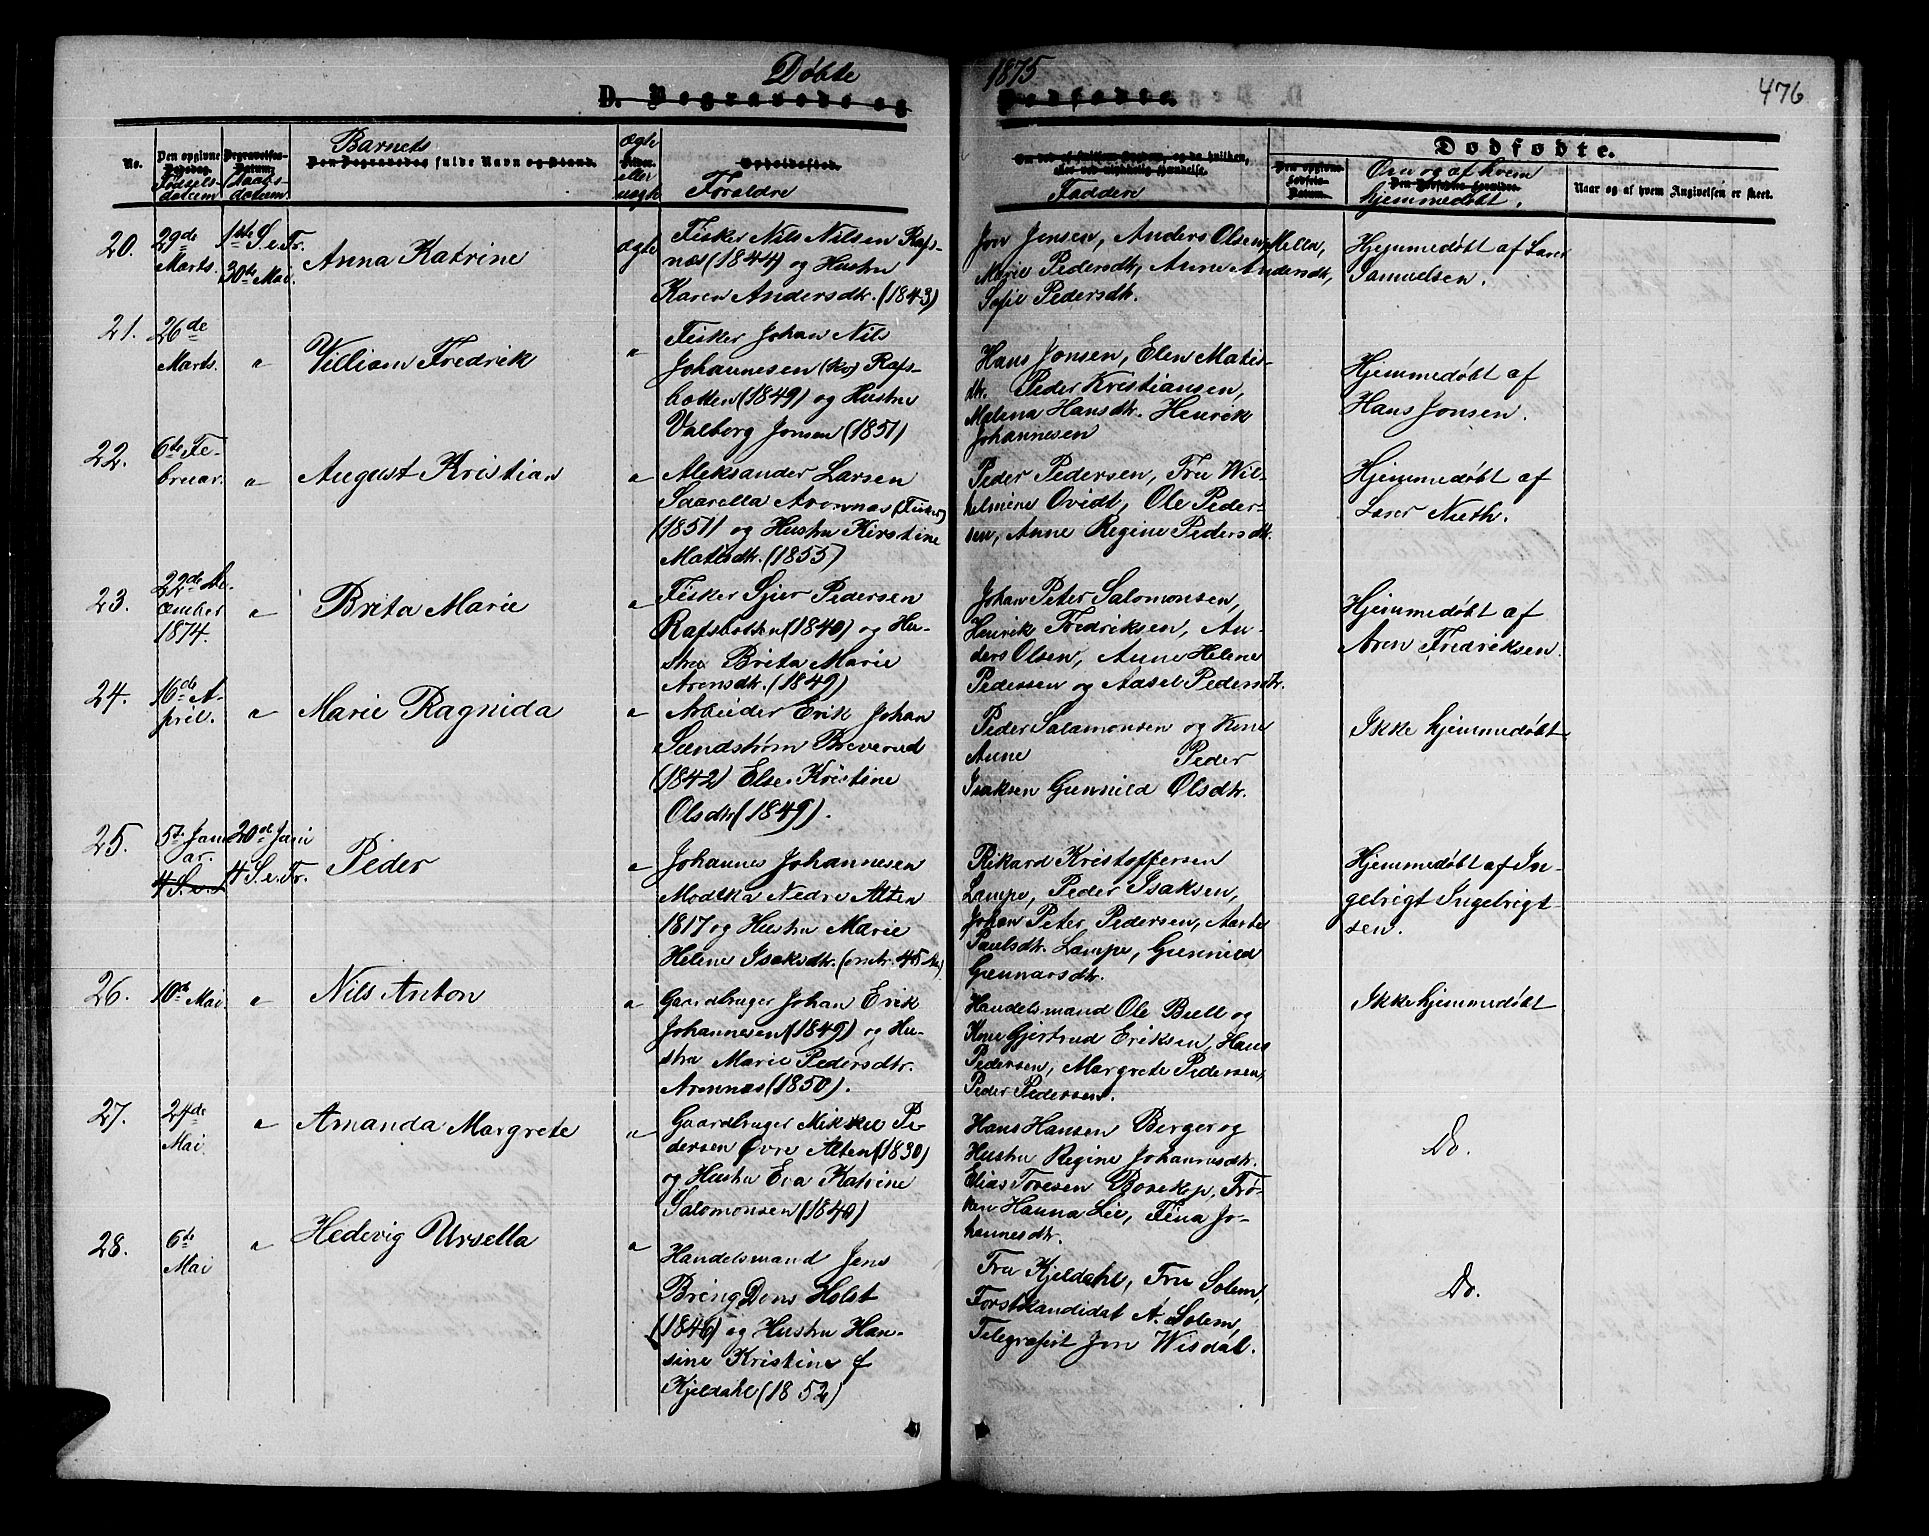 Døbte 1875
476
D. Begravede og Dødfødte.
No.
Den opgivne Dødsdag. Fødselsdatum
Begravelses-Datum. Daabsdatum.
Barnets
Den Begravedes fulde Navn og Stand.
Ægte eller uægte
Opholdssted.
Forældre
Faddere
Dødfødte.
Den opgivne Fødsels-Datum.
Om og af hvem
hjemmedøbt.
Naar og af hvem Angivelsen er skeet.
20.
29de
Marts.
1ste S. e. Tr.
30te Mai.
Anna Katrine
ægte
Fisker Nils Nilsen Rafs-
næs (1844) og Hustru
Karen Andersdtr. (1843)
Jon Jensen, Anders Olsen Mella,
Marie Pedersdtr, Anne Andersdtr,
Sofie Pedersdtr.
Hjemmedøbt af Lærer
Samuelsen.
21.
26de
Marts.
"
Villiam Fredrik
"
Fisker Johan Nils
Johannesen (kv) Rafs-
botten (1849) og Hustru
Valborg Jonsen (1851)
Hans Jonsen, Elen Matis-
dtr. Peder Kristiansen,
Malena Hansdtr. Henrik
Johannesen
Hjemmedøbt af
Hans Jonsen.
22.
6te Fe-
bruar.
"
August Kristian
"
Aleksander Larsen
Saarella Aronnæs (Fisker)
(1851) og Hustru Kirstine
Matisdtr. (1855)
Peder Pedersen, Fru Wil-
helmine Ovidt, Ole Peder-
sen, Anne Regine Pedersdtr.
Hjemmedøbt af
Lærer Nieth.
23.
22de De-
cember
1874.
"
Brita Marie
"
Fisker Sjier Pedersen
Rafsbotten (1840) og Hu-
stru Brita Marie
Arensdtr. (1849)
Johan Peter Salomonsen,
Henrik Fredriksen, An-
ders Olsen, Anne Helene
Pedersen og Aasel Pedersdtr.
Hjemmedøbt af
Aron Fredriksen.
24.
16de A-
pril.
"
Marie Ragnida
"
Arbeider Erik Johan
Sundstrøm Breverud
(1842) Else Kristine
Olsdtr (1849).
Peder Salamonsen og Kone
Anne Peder
Isaksen Gunnild Olsdtr.
Ikke hjemmedøbt
25.
5te Janu
ar.
4 S. e.
20de Juni
4 S. e. Tr.
Peder
"
Johannes Johannesen
Modtka Nedre Alten
1817 og Hustru Marie
Helene Isaksdtr. (omtr. 45 Aar)
Rikard Kristoffersen
Lampe, Peder Isaksen,
Johan Peter Pedersen, Marthe
Paulsdtr. Lampe, Gunnild
Gunnarsdtr.
Hjemmedøbt af In-
gebrigt Ingebrigt-
sen.
26.
10de Mai.
"
Nils Anton
"
Gaardbruger Johan Erik
Johannesen (1849) og Hu-
stru Marie Pedersdtr.
Aronnæs (1850).
Handelsmand Ole Bull og
Kone Gjertrud Eriksen, Hans
Pedersen, Margrete Pedersen,
Peder Pedersen.
Ikke hjemmedøbt
27.
24de
Mai.
"
Amanda Margrete
"
Gaardbruger Mikkel Pe-
dersen Øvre Alten (1830)
og Hustru Eva Katrine
Salomonsen (1840)
Hans Hansen Berger og
Hustru Regine Johannesdtr.
Elias Toresen Bosekop, Frø-
ken Hanna Lie, Fina Jo-
hannesdtr.
Do.
28.
6te
Mai
"
Hedevig Ursella
"
Handelsmand Jens
Bring Dons Holst
(1846) og Hustru Han-
sine Kristine f
Kjeldahl (1852)
Fru Kjeldahl, Fru Solem,
Forstkandidat A. Solem,
Telegrafist Jon Wisdal.
Do.